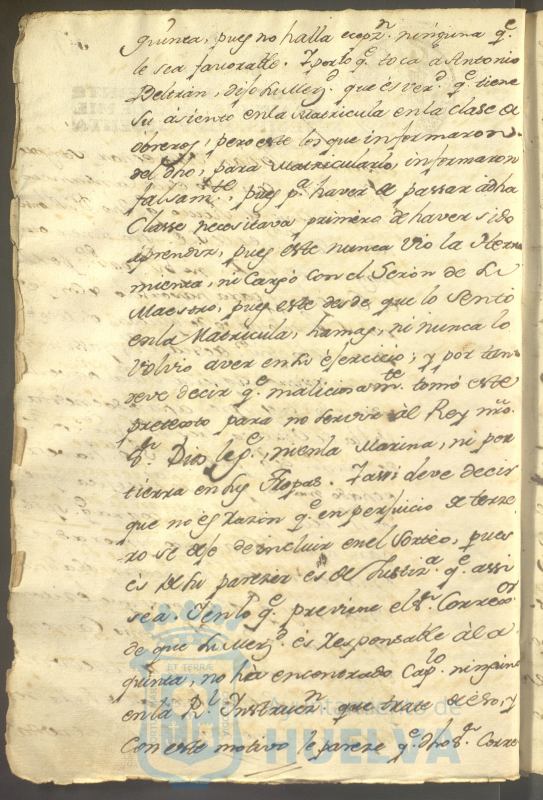 quinta, pues no halla ecepz.n ninguna q.e
le sea favorable. Y por lo q.e toca â Antonio
Beltran, dijo su Mrz.d que és ver.d q.e tiene
su ásiento en la Matricula en la clase de
obreros, pero este los que informaron
del dho, para Matricularlo, informaron
falsam.te, pues p.a haver de passar a dha
Classe, necesitava primero de haver sido
aprendiz, pues este nunca vio la Herra
mienta, ni Cargó con el Serón de su
Maestro, pues este desde que lo Sentó
en la Matricula, hamas, ni nunca lo
volvio a ver en su éjercicio, y por tan
deve decir q.e maliciosam.te tomó este
pretexto para no servir àl Rey nro.
S.r Dios le g.e, ni en la Marina, ni por
tierra en sus Tropas. Y assi deve decir
que no és Razon q.e en perjuicio de terze
ro se deje de incluir en el Sorteo, pues
és de su parezer és de Justiz.a q.e assi
séa. Y en lo q.e previene el S.r Correx.or
de que su Merz.d és Responsable âl a
quinta, no ha encontrado Cap.lo ninguno
en la R.l Instrucz.n que trate de éso, y
con este motivo le pareze q.e dho S.r Corre
ET TERRAE
Ayuntamiento de
HUELVA